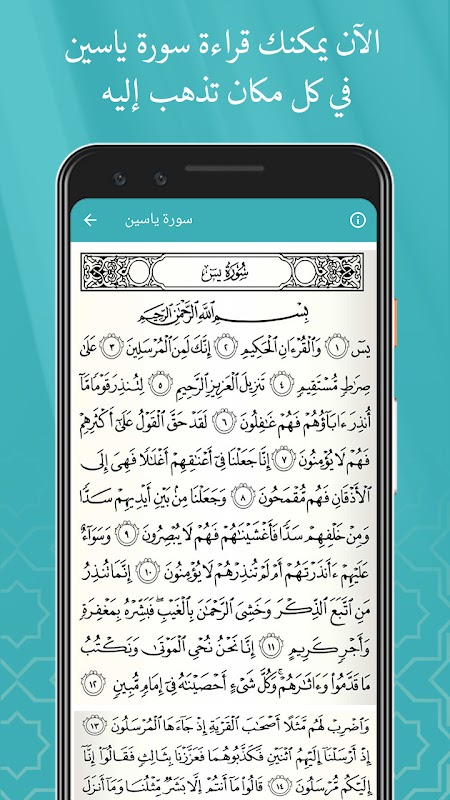 الآن يمكنك قراءة سورة ياسين
في كل مكان تذهب إليه
سورة ياسين
سُورَةُ يسٓ
بِسۡمِ ٱللَّهِ ٱلرَّحۡمَٰنِ ٱلرَّحِيمِ
يسٓ ١ وَٱلۡقُرۡءَانِ ٱلۡحَكِيمِ ٢ إِنَّكَ لَمِنَ ٱلۡمُرۡسَلِينَ ٣ عَلَىٰ
صِرَٰطٖ مُّسۡتَقِيمٖ ٤ تَنزِيلَ ٱلۡعَزِيزِ ٱلرَّحِيمِ ٥ لِتُنذِرَ قَوۡمٗا مَّآ
أُنذِرَ ءَابَآؤُهُمۡ فَهُمۡ غَٰفِلُونَ ٦ لَقَدۡ حَقَّ ٱلۡقَوۡلُ عَلَىٰٓ أَكۡثَرِهِمۡ
فَهُمۡ لَا يُؤۡمِنُونَ ٧ إِنَّا جَعَلۡنَا فِيٓ أَعۡنَٰقِهِمۡ أَغۡلَٰلٗا فَهِيَ إِلَى
ٱلۡأَذۡقَانِ فَهُم مُّقۡمَحُونَ ٨ وَجَعَلۡنَا مِنۢ بَيۡنِ أَيۡدِيهِمۡ سَدّٗا
وَمِنۡ خَلۡفِهِمۡ سَدّٗا فَأَغۡشَيۡنَٰهُمۡ فَهُمۡ لَا يُبۡصِرُونَ ٩ وَسَوَآءٌ
عَلَيۡهِمۡ ءَأَنذَرۡتَهُمۡ أَمۡ لَمۡ تُنذِرۡهُمۡ لَا يُؤۡمِنُونَ ١٠ إِنَّمَا تُنذِرُ
مَنِ ٱتَّبَعَ ٱلذِّكۡرَ وَخَشِيَ ٱلرَّحۡمَٰنَ بِٱلۡغَيۡبِۖ فَبَشِّرۡهُ بِمَغۡفِرَةٖ
وَأَجۡرٖ كَرِيمٍ ١١ إِنَّا نَحۡنُ نُحۡيِ ٱلۡمَوۡتَىٰ وَنَكۡتُبُ
مَا قَدَّمُواْ وَءَاثَٰرَهُمۡۚ وَكُلَّ شَيۡءٍ أَحۡصَيۡنَٰهُ فِيٓ إِمَامٖ مُّبِينٖ ١٢
وَٱضۡرِبۡ لَهُم مَّثَلًا أَصۡحَٰبَ ٱلۡقَرۡيَةِ إِذۡ جَآءَهَا ٱلۡمُرۡسَلُونَ ١٣
إِذۡ أَرۡسَلۡنَآ إِلَيۡهِمُ ٱثۡنَيۡنِ فَكَذَّبُوهُمَا فَعَزَّزۡنَا بِثَالِثٖ فَقَالُوٓاْ إِنَّآ
إِلَيۡكُم مُّرۡسَلُونَ ١٤ قَالُواْ مَآ أَنتُمۡ إِلَّا بَشَرٞ مِّثۡلُنَا وَمَآ أَنزَلَ